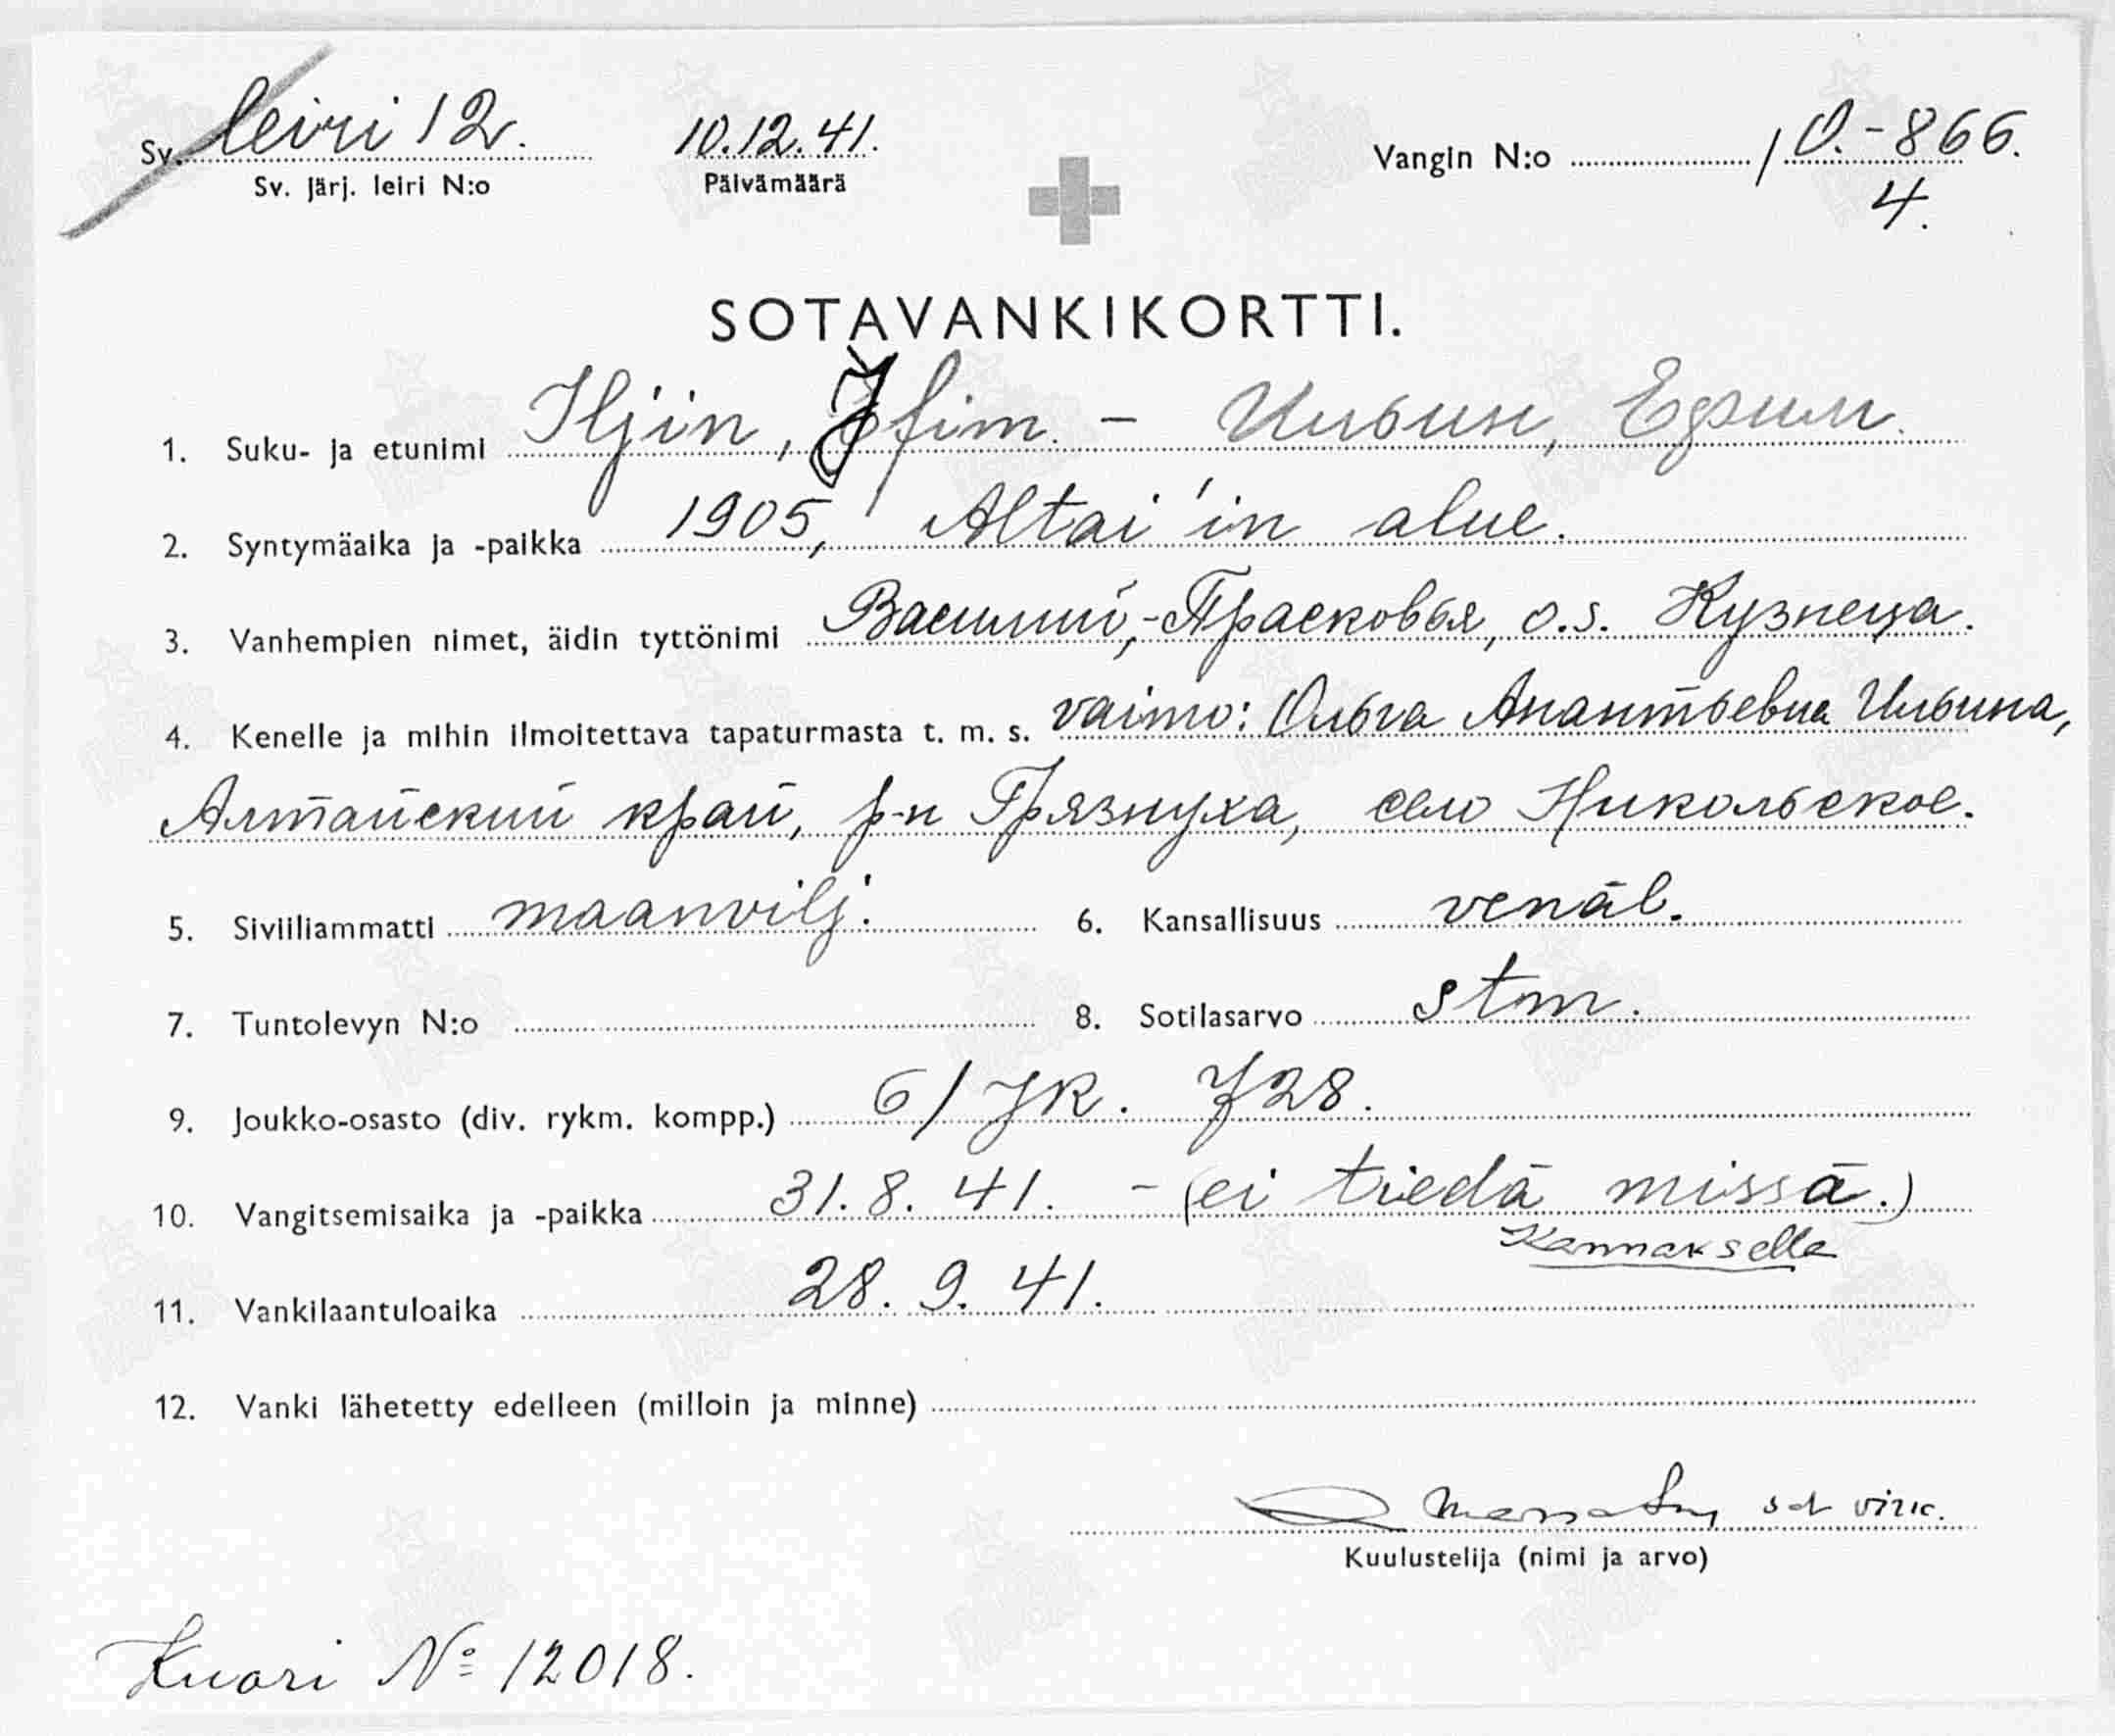 Sv. leiri 12. 10.12.41. Vangin N:o / O.-866.
Sv. Järj. leiri N:o Päivämäärä 4.
SOTAVANKIKORTTI.
1. Suku- ja etunimi Iljin, Jfim. - Ильин, Ефим.
2. Syntymäaika ja -paikka 1905, Altai'in alue.
3. Vanhempien nimet, äidin tyttönimi Василий,-Прасковья, o.s. Кузнеца.
4. Kenelle ja mihin ilmoitettava tapaturmasta t. m. s. vaimo: Ольга Анантьевна Ильина,
Алтайский край, р-н Грязнуха, село Никольское.
5. Siviiliammatti maanvilj. 6. Kansallisuus venäl.
7. Tuntolevyn N:o 8. Sotilasarvo stm.
9. Joukko-osasto (div. rykm. kompp.) 6/JR. 728.
10. Vangitsemisaika ja -paikka 31.8.41. - (ei tiedä missä.)
Kannaksella
11. Vankilaantuloaika 28.9.41.
12. Vanki lähetetty edelleen (milloin ja minne)
sot virk.
Kuulustelija (nimi ja arvo)
Kuori № 12018.